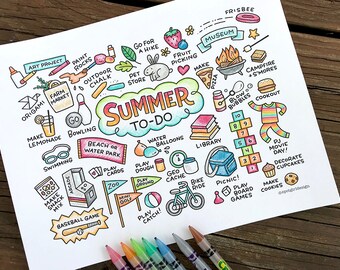 FRISBEE
ART PROJECT
PAINT
ROCKS
GO FOR
A HIKE
MUSEUM
OUTDOOR
CHALK
PET
STORE
FRUIT
PICKING
CAMPFIRE
& S'MORES
ORIGAMI
FARM
MARKET
MAKE
PIZZA
SUMMER
TO-DO
BLOW
BUBBLES
COOKOUT
MAKE
LEMONADE
BOWLING
SWIMMING
BEACH OR
WATER PARK
WATER
BALLOONS
LIBRARY
PJ
MOVIE
DAY!
MAKE
SNACK
MIX
PLAY
CARDS
PLAY
DOUGH
GEO
CACHE
ZOO
MINI
BIKE
RIDE
PICNIC!
DECORATE
CUPCAKES
BASEBALL GAME
PLAY
CATCH!
PLAY
BOARD
GAMES
MAKE
COOKIES